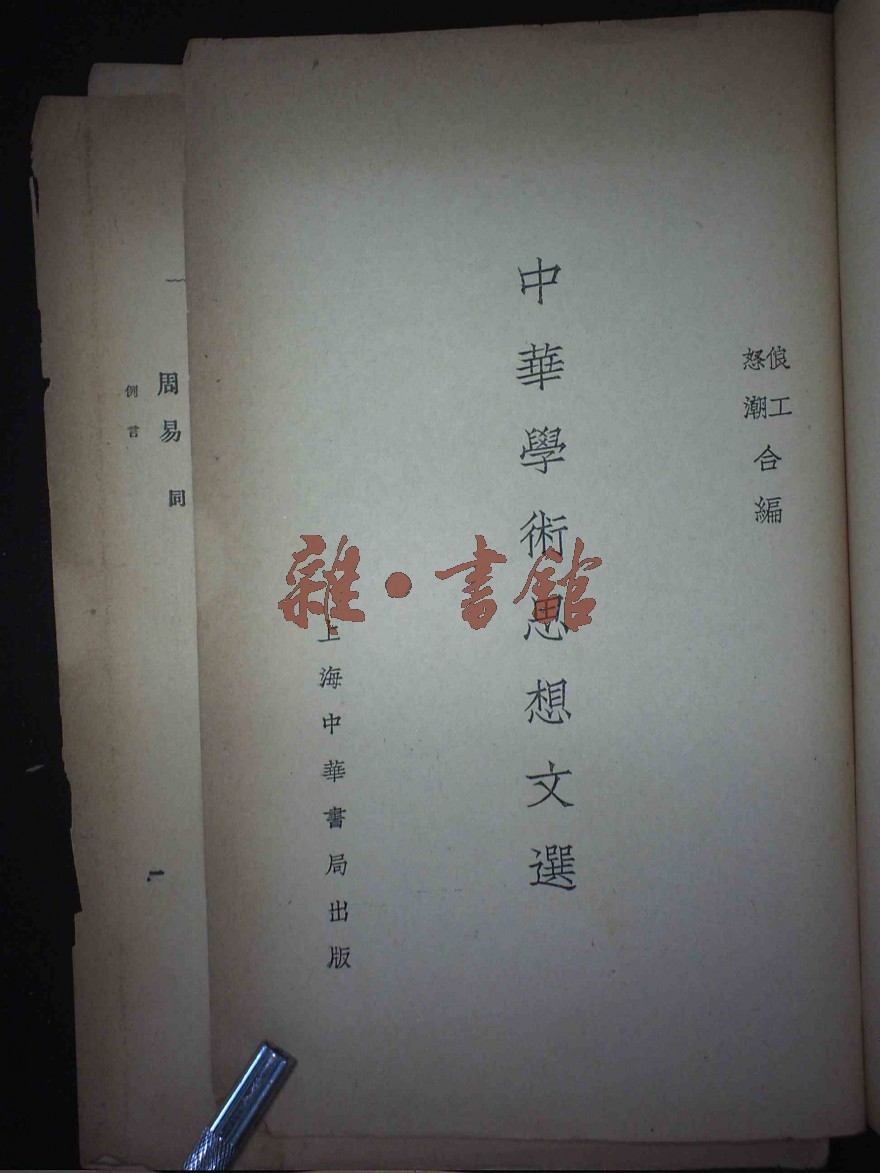 俍工
怒潮
合編
中華學術思想文選
上海中華書局出版
雜·書館
周易
同
例言